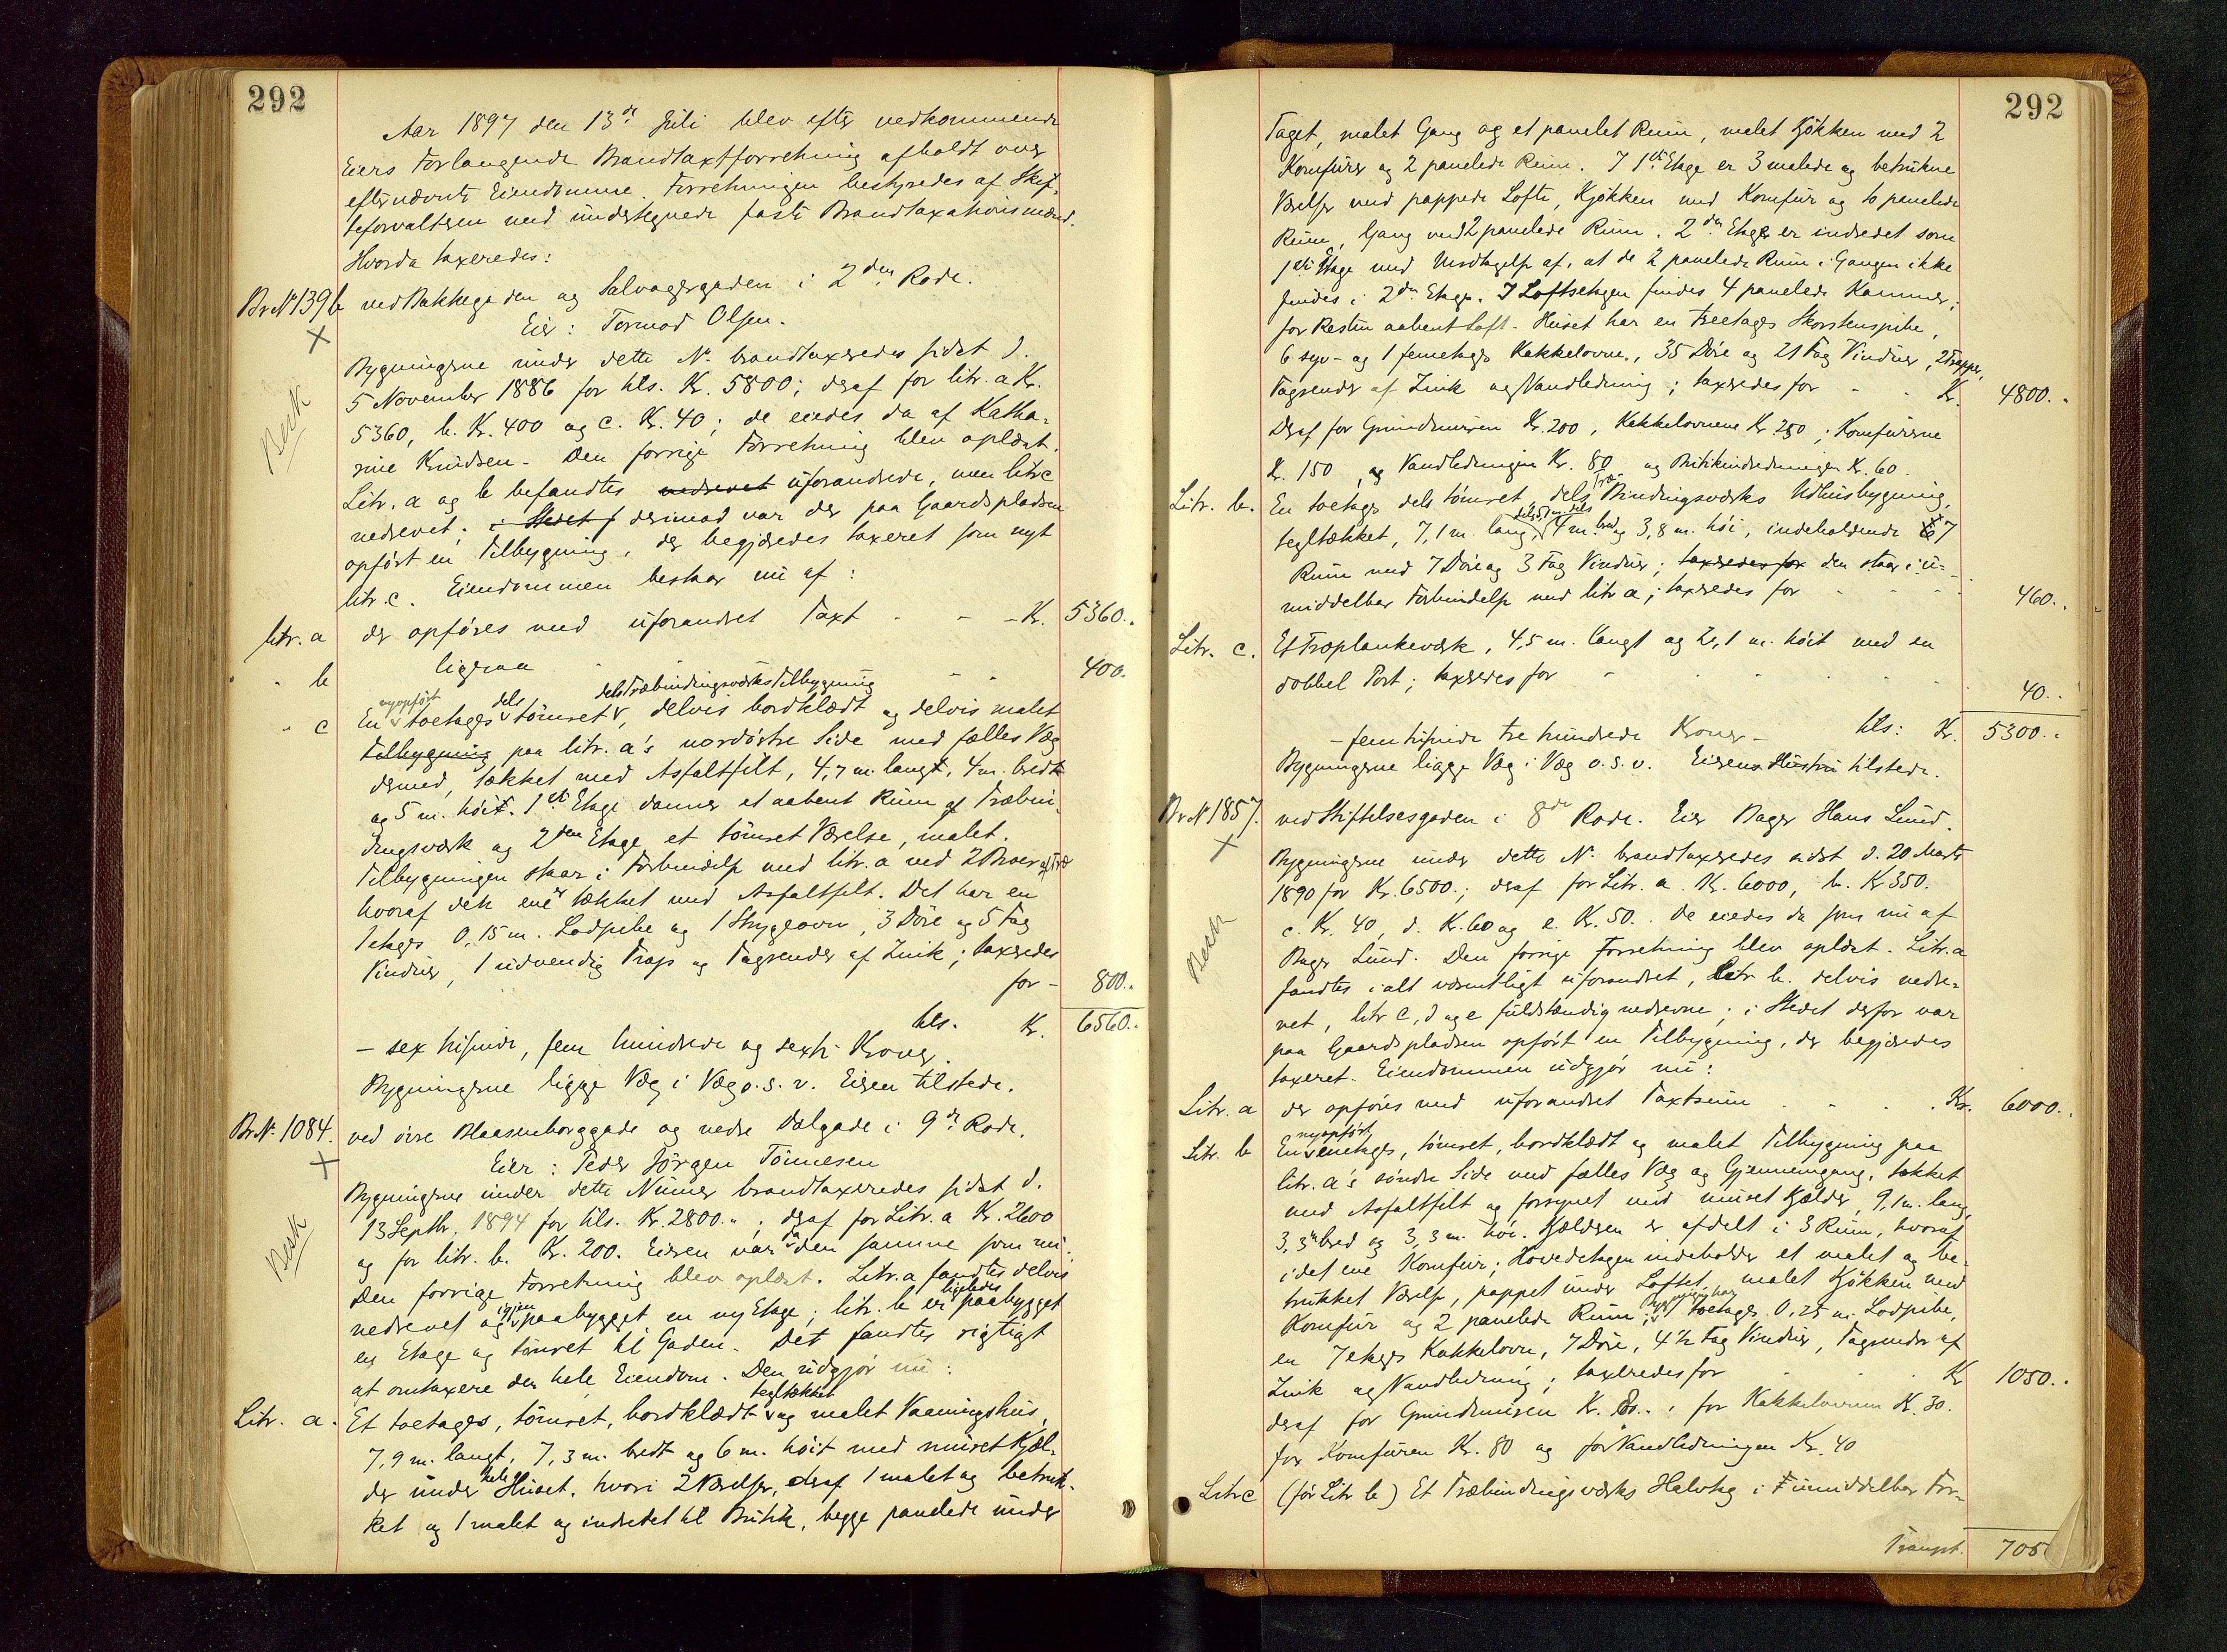 292
Aar 1897 den 13de Juli blev efter vedkommende
Eiers Forlangende Brandtaxtforretning afholdt over
efternævnte Eiendomme. Forretningen bestyredes af Skif-
teforvalteren med undertegnede faste Brandtaxationsmænd.
Hvorda taxeredes:
Br No 139b ved Bakkegaden og Salvagergaden i 2den Rode.
Eier: Tormod Olsen.
Bygningerne under dette No. brandtaxeredes sidst d.
5 November 1886 for tils. Kr. 5800; deraf for litr. a Kr.
5360, b. Kr. 400 og c. Kr. 40; de eiedes da af Katha-
rine Knudsen. Den forrige Forretning blev oplæst.
Besk
Litr. a og b befandtes nedrevet uforandrede, men litr c
nedrevet; i Stedet f derimod var der paa Gaardspladsen
opført en Tilbygning, der begjæredes taxeret som nyt
litr. c. Eiendommen bestaar nu af:
litr. a der opføres med uforandret Taxt - - - Kr. 5360..
" b ligesaa - - 400.
nyopført dels dels Træbindingsværks Tilbygning
" c En toetages tømret, delvis bordklædt og delvis malet
Tilbygning paa litr. a's nordøstre Side med fælles Væg
dermed, tækket med Asfaltfilt, 4,7 m. langt, 4 m. bredt
og 5 m. høit. 1ste Etage danner et aabent Rum af Træbin-
dingsværk og 2den Etage et tømret Værelse, malet.
Tilbygningen staar i Forbindelse med litr. a ved 2 Broer af Træ
hvoraf den ene er tækket med Asfaltfilt. Det har en
1etages 0,15 m. Lodpibe og 1 Strygeovn, 3 Døre og 5 Fag
Vinduer, 1 udvendig Trap og Tagrender af Zink; taxeredes
for - 800..
tils. Kr. 6560..
- sex tusinde, fem hundrede og sexti Kroner.
Bygningerne ligge Væg i Væg o.s.v. Eieren tilstede.
Br No. 1084. ved øvre Blaasenborggade og nedre Dalgade i 9de Rode.
Eier: Peder Jørgen Tønnesen
Bygningerne under dette Numer brandtaxeredes sidst d.
13 Septbr. 1894 for tils. Kr. 2800.. ; deraf for Litr. a Kr. 2600
og for litr. b. Kr. 200. Eieren var da den samme som nu.
Besk
Den forrige Forretning blev oplæst. Litr. a fandtes delvis
igjen ligeledes
nedrevet og paabygget en ny Etage; litr. b er paabygget
en Etage og tømret til Gaden. Det fandtes rigtigt
at omtaxere den hele Eiendom. Den udgjør nu:
tegltækket
Litr. a. Et toetages, tømret, bordklædt og malet Vaaningshus,
7,9 m. langt, 7,3 m. bredt og 6 m. høit med muret Kjæl-
der under hele Huset, hvori 2 Værelser, deraf 1 malet og betruk-
ket og 1 malet og indredet til Butik, begge panelede under
292
Taget, malet Gang og et panelet Rum, malet Kjøkken med 2
Komfurer og 2 panelede Rum. I 1ste Etage er 3 malede og betrukne
Værelser med pappede Lofte, Kjøkken med Komfur og 10 panelede
Rum, Gang med 2 panelede Rum. 2den Etage er indredet som
1ste Etage med Undtagelse af, at de 2 panelede Rum i Gangen ikke
findes i 2den Etage. I Loftsetagen findes 4 panelede Kammer;
for Resten aabent Loft. Huset har en treetages Skorstenspibe,
6 syv- og 1 femetages Kakkelovne, 35 Døre og 21 Fag Vinduer, 2 Trapper,
Tagrender af Zink og Vandledning; taxeredes for - - Kr. 4800..
Deraf for Grundmuren Kr. 200, Kakkelovnene Kr. 250; Komfurerne
Kr. 150, og Vandledningen Kr. 80 og Butikindredningen Kr. 60.
Litr. b. En toetages dels tømret, dels Træ Bindingsværks Udhusbygning,
tegltækket, 7,1 m. lang, 4 m. bred og 3,8 m. høi, indeholdende 7
Rum med 7 Døre og 3 Fag Vinduer; taxeredes for den staar i u-
middelbar Forbindelse med litr a; taxeredes for - - - 460..
Litr. c. Et Træplankeværk, 4,5 m. langt og 2,1 m. høit med en
dobbel Port; taxeredes for - - - 40..
- fem tusinde tre hundrede Kroner - tils: Kr. 5300..
Bygningerne ligge Væg i Væg o.s.v. Eierens Hustru tilstede.
Br No 1857. ved Stiftelsesgaden i 8de Rode. Eier Bager Hans Lund.
Bygningerne under dette No. brandtaxeredes sidst d. 20 Marts
1890 for Kr. 6500.; deraf for Litr. a. Kr. 6000, b. Kr 350.
c. Kr. 40, d. Kr. 60 og e. Kr. 50.. De eiedes da som nu af
Besk
Bager Lund. Den forrige Forretning blev oplæst. Litr. a
fandtes i alt væsentligt uforandret, Litr b. delvis nedre-
vet, litr c, d og e fuldstændig nedrevne; i Stedet derfor var
paa Gaardspladsen opført en Tilbygning, der begjæredes
taxeret. Eiendommen udgjør nu:
Litr. a der opføres med uforandret Taxtsum - - - Kr. 6000..
nyopført
Litr. b En enetages, tømret, bordklædt og malet Tilbygning paa
litr. a's søndre Side med fælles Væg og Gjennemgang, tækket
med Asfaltfilt og forsynet med muret Kjælder, 9,1 m. lang,
3,3 m bred og 3,3 m. høi. Kjælderen er afdelt i 3 Rum, hvoraf
i det ene Komfur; Hovedetagen indeholder et malet og be-
trukket Værelse, pappet under Loftet, malet Kjøkken med
Komfur og 2 panelede Rum; Bygningen har 1 toetages 0,25 m. Lodpibe,
en 7etages Kakkelovn, 7 Døre, 4 1/2 Fag Vinduer, Tagrender af
Zink og Vandledning; taxeredes for - - Kr 1050..
deraf for Grundmuren Kr. 80..; for Kakkelovnen Kr. 30.
for Komfuren Kr. 80 og for Vandledningen Kr. 40
Litr c (før Litr b) Et Træbindingsværks Halvtag i umiddelbar For-
Transpt. 705